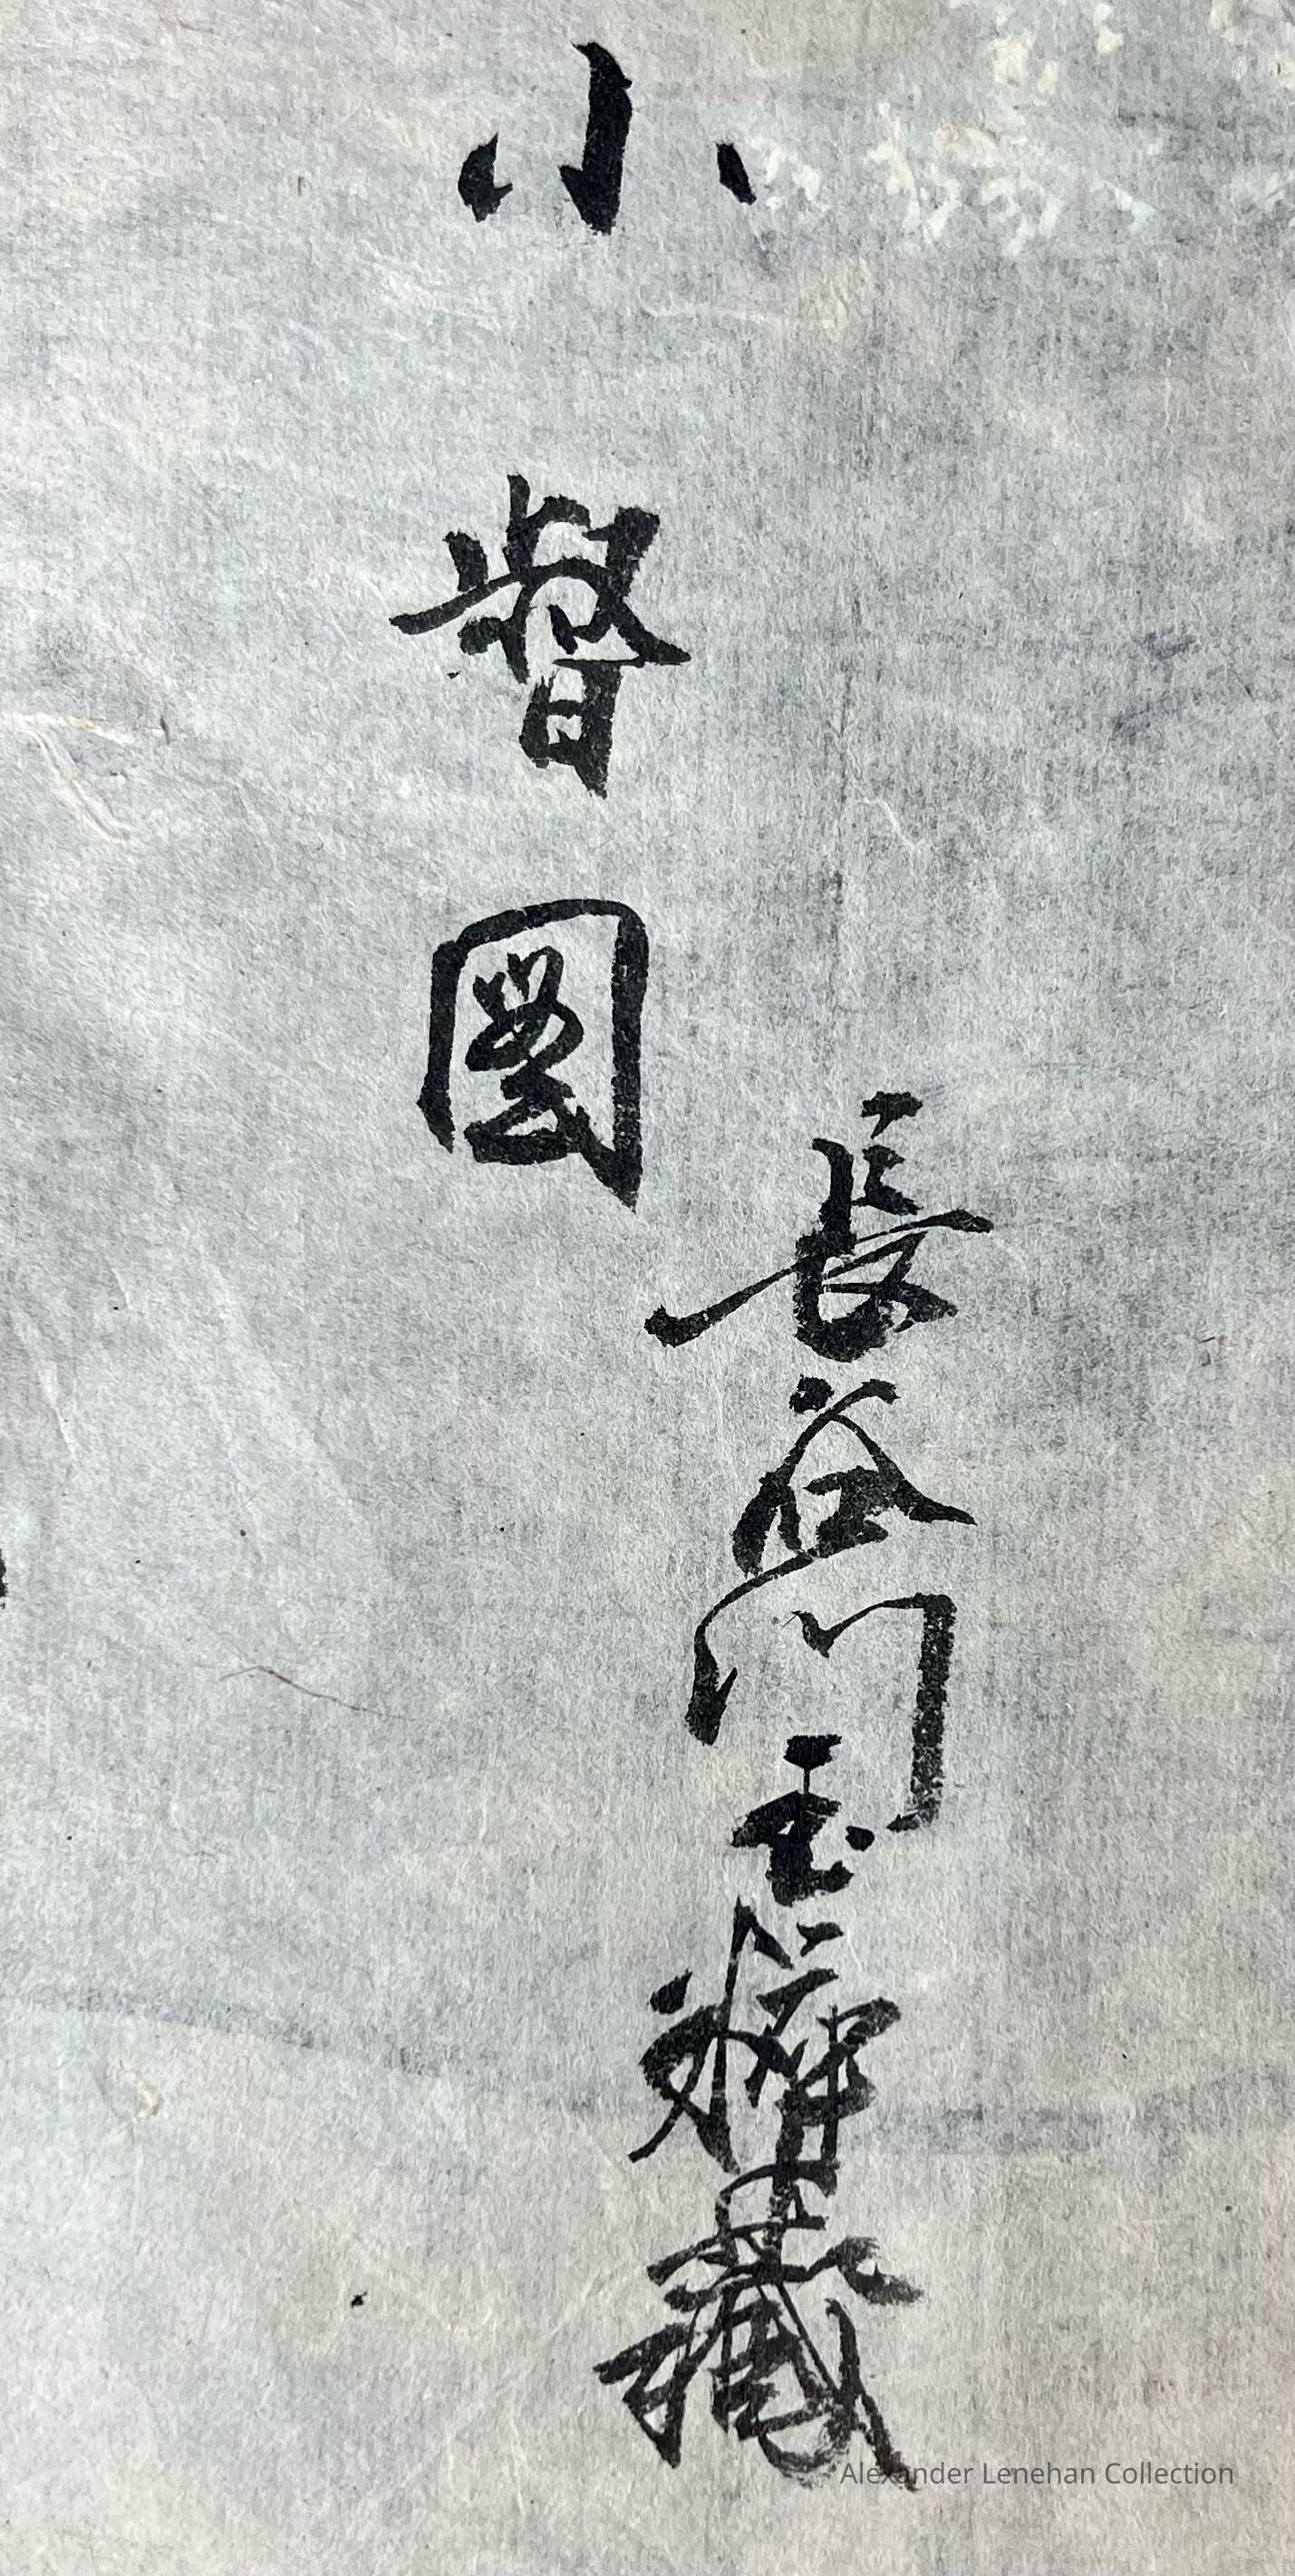 長谷川玉
小督圖
Alexander Lenehan Collection